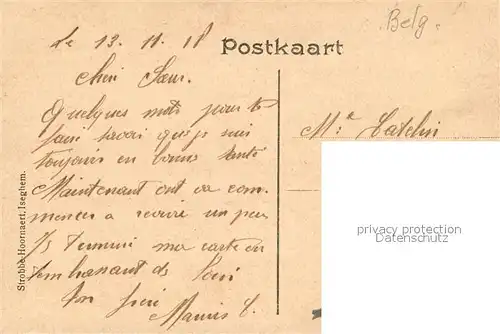 Belg.
Le 13. 11. 18
Postkaart
Chère Sœur.
Quelques mots pour te
faire savoir que je suis
toujours en bonne santé
Maintenant ont va com-
mencer a revivre un peu
Je termine ma carte en
t'embrassant de loin
Ton frère
Maurice C.
Mr. Catelin
Strobbe-Hoornaert, Iseghem.
privacy protection
Datenschutz